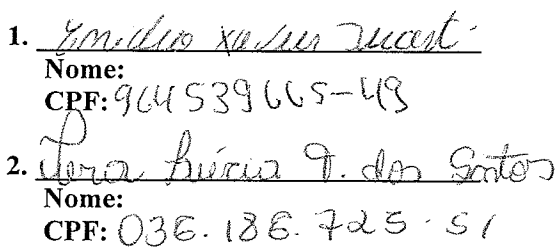 1. Emidio Xavier
Nome:
CPF: 964539665-49
2. Vera Lúcia D. dos Santos
Nome:
CPF: 036.186.725-51